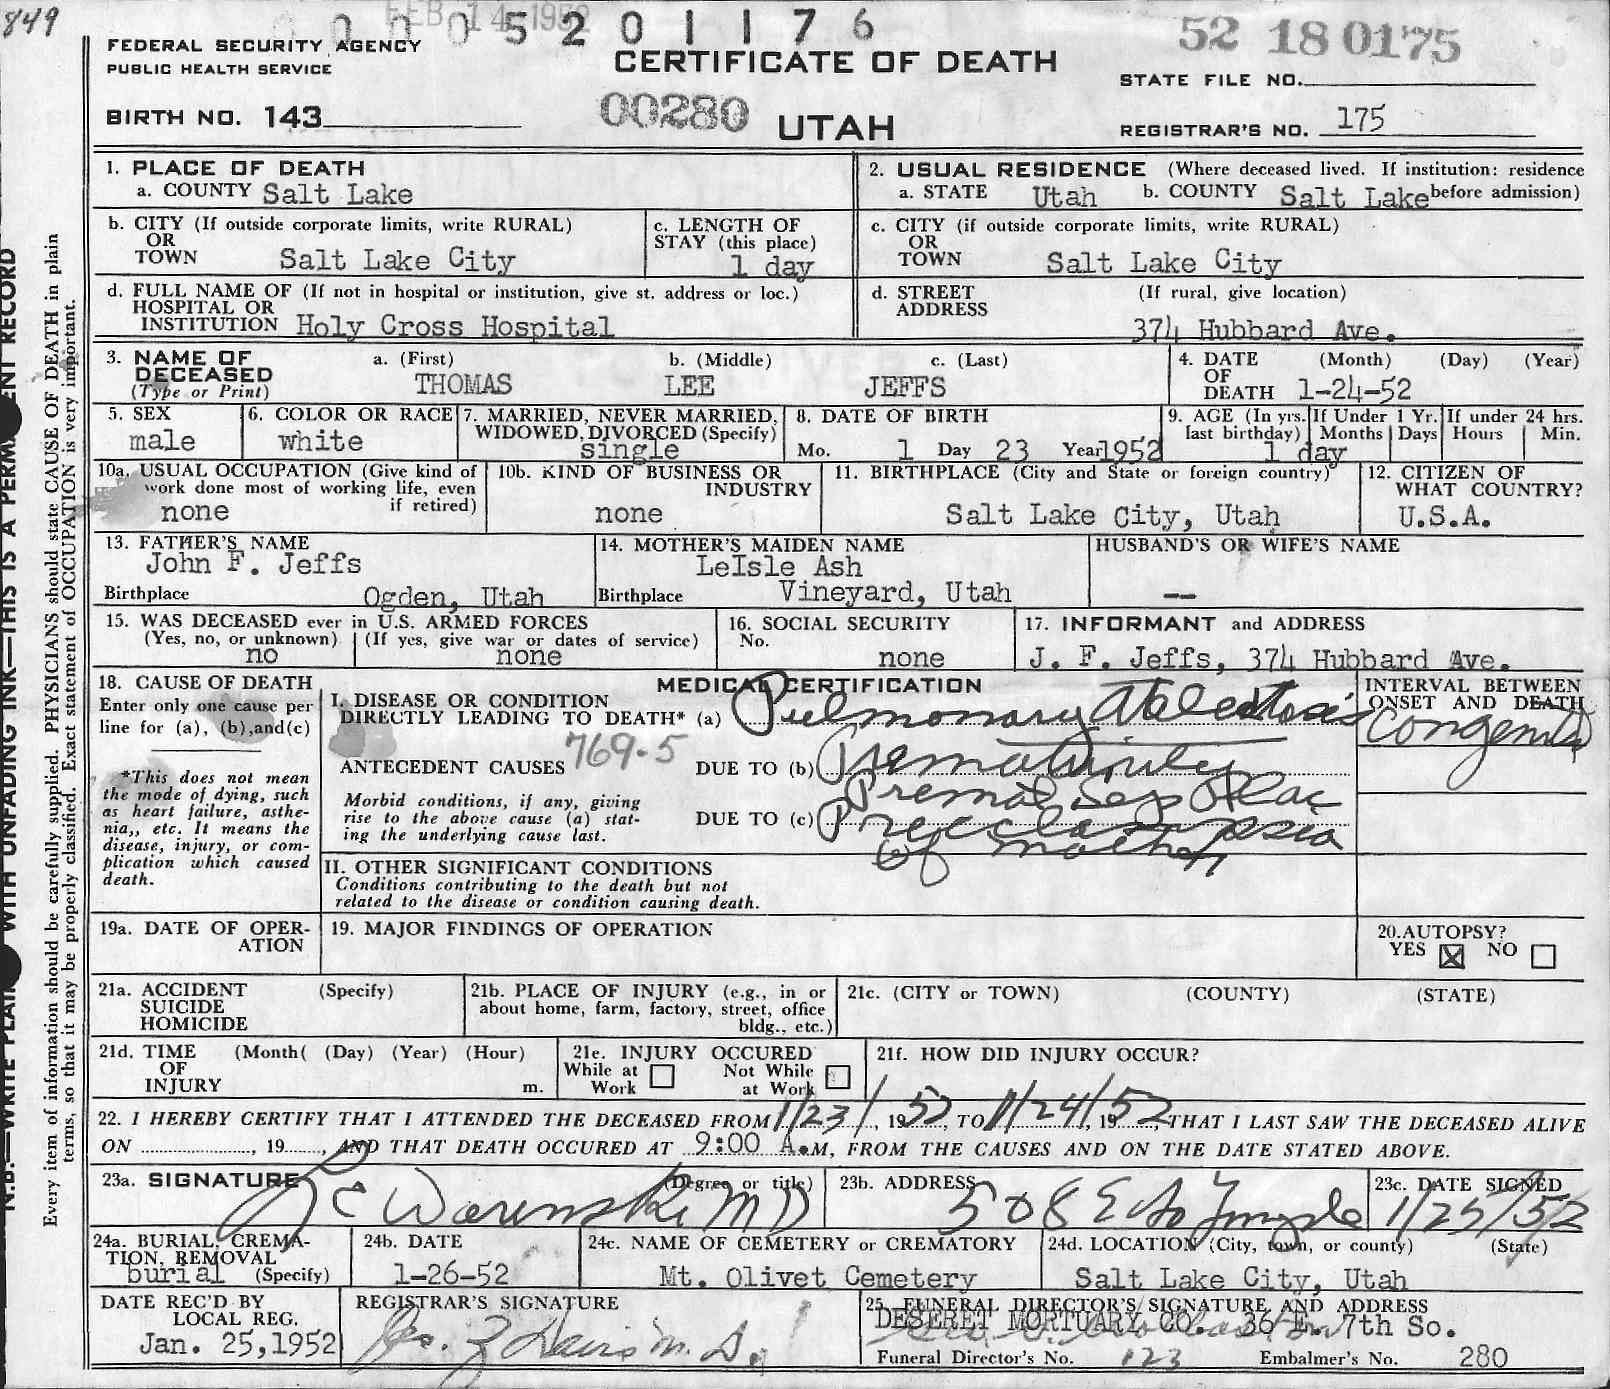 849
FEB 14 1952
0 0 0 5 2 0 1 1 7 6
52 18 0175
FEDERAL SECURITY AGENCY
PUBLIC HEALTH SERVICE
CERTIFICATE OF DEATH
STATE FILE NO.
BIRTH NO. 143
00280 UTAH
REGISTRAR'S NO. 175
1. PLACE OF DEATH
a. COUNTY Salt Lake
2. USUAL RESIDENCE (Where deceased lived. If institution: residence
a. STATE Utah b. COUNTY Salt Lake before admission)
b. CITY (If outside corporate limits, write RURAL)
OR
TOWN Salt Lake City
c. LENGTH OF
STAY (this place)
1 day
c. CITY (if outside corporate limits, write RURAL)
OR
TOWN Salt Lake City
d. FULL NAME OF (If not in hospital or institution, give st. address or loc.)
HOSPITAL OR
INSTITUTION Holy Cross Hospital
d. STREET (If rural, give location)
ADDRESS
374 Hubbard Ave.
3. NAME OF DECEASED
(Type or Print)
a. (First) b. (Middle) c. (Last)
THOMAS LEE JEFFS
4. DATE (Month) (Day) (Year)
OF
DEATH 1-24-52
5. SEX
male
6. COLOR OR RACE
white
7. MARRIED, NEVER MARRIED,
WIDOWED, DIVORCED (Specify)
single
8. DATE OF BIRTH
Mo. 1 Day 23 Year 1952
9. AGE (In yrs. last birthday)
If Under 1 Yr. If under 24 hrs.
Months Days Hours Min.
1 day
10a. USUAL OCCUPATION (Give kind of
work done most of working life, even
if retired)
none
10b. KIND OF BUSINESS OR
INDUSTRY
none
11. BIRTHPLACE (City and State or foreign country)
Salt Lake City, Utah
12. CITIZEN OF
WHAT COUNTRY?
U.S.A.
13. FATHER'S NAME
John F. Jeffs
Birthplace Ogden, Utah
14. MOTHER'S MAIDEN NAME
LeIsle Ash
Birthplace Vineyard, Utah
HUSBAND'S OR WIFE'S NAME
--
15. WAS DECEASED ever in U.S. ARMED FORCES
(Yes, no, or unknown) (If yes, give war or dates of service)
no none
16. SOCIAL SECURITY
No.
none
17. INFORMANT and ADDRESS
J. F. Jeffs, 374 Hubbard Ave.
18. CAUSE OF DEATH
Enter only one cause per
line for (a), (b),and(c)
*This does not mean
the mode of dying, such
as heart failure, asthe-
nia,, etc. It means the
disease, injury, or com-
plication which caused
death.
MEDICAL CERTIFICATION
I. DISEASE OR CONDITION
DIRECTLY LEADING TO DEATH* (a) Pulmonary Atelectasis
769-5
ANTECEDENT CAUSES DUE TO (b) Prematurity
Premat Sep Plac
Morbid conditions, if any, giving
rise to the above cause (a) stat-
ing the underlying cause last.
DUE TO (c) Preeclampsia
of mother
INTERVAL BETWEEN
ONSET AND DEATH
Congenital
II. OTHER SIGNIFICANT CONDITIONS
Conditions contributing to the death but not
related to the disease or condition causing death.
19a. DATE OF OPER-
ATION
19. MAJOR FINDINGS OF OPERATION
20.AUTOPSY?
YES X NO
21a. ACCIDENT (Specify)
SUICIDE
HOMICIDE
21b. PLACE OF INJURY (e.g., in or
about home, farm, factory, street, office
bldg., etc.)
21c. (CITY or TOWN) (COUNTY) (STATE)
21d. TIME (Month( (Day) (Year) (Hour)
OF
INJURY m.
21e. INJURY OCCURED
While at Work Not While at Work
21f. HOW DID INJURY OCCUR?
22. I HEREBY CERTIFY THAT I ATTENDED THE DECEASED FROM 1/23/, 1952, TO 1/24/, 1952, THAT I LAST SAW THE DECEASED ALIVE
ON ..................., 19......., AND THAT DEATH OCCURED AT 9:00 A.M, FROM THE CAUSES AND ON THE DATE STATED ABOVE.
23a. SIGNATURE (Degree or title)
Warenski MD
23b. ADDRESS
508 E So Temple
23c. DATE SIGNED
1/25/52
24a. BURIAL, CREMA-
TION, REMOVAL
burial (Specify)
24b. DATE
1-26-52
24c. NAME OF CEMETERY or CREMATORY
Mt. Olivet Cemetery
24d. LOCATION (City, town, or county) (State)
Salt Lake City, Utah
DATE REC'D BY
LOCAL REG.
Jan. 25,1952
REGISTRAR'S SIGNATURE
25. FUNERAL DIRECTOR'S SIGNATURE AND ADDRESS
DESERET MORTUARY CO. 36 E. 7th So.
Funeral Director's No. 123 Embalmer's No. 280
N.B.—WRITE PLAI WITH UNFADING INK—THIS IS A PERM ENT RECORD
Every item of information should be carefully supplied. PHYSICIANS should state CAUSE OF DEATH in plain
terms, so that it may be properly classified. Exact statement of OCCUPATION is very important.